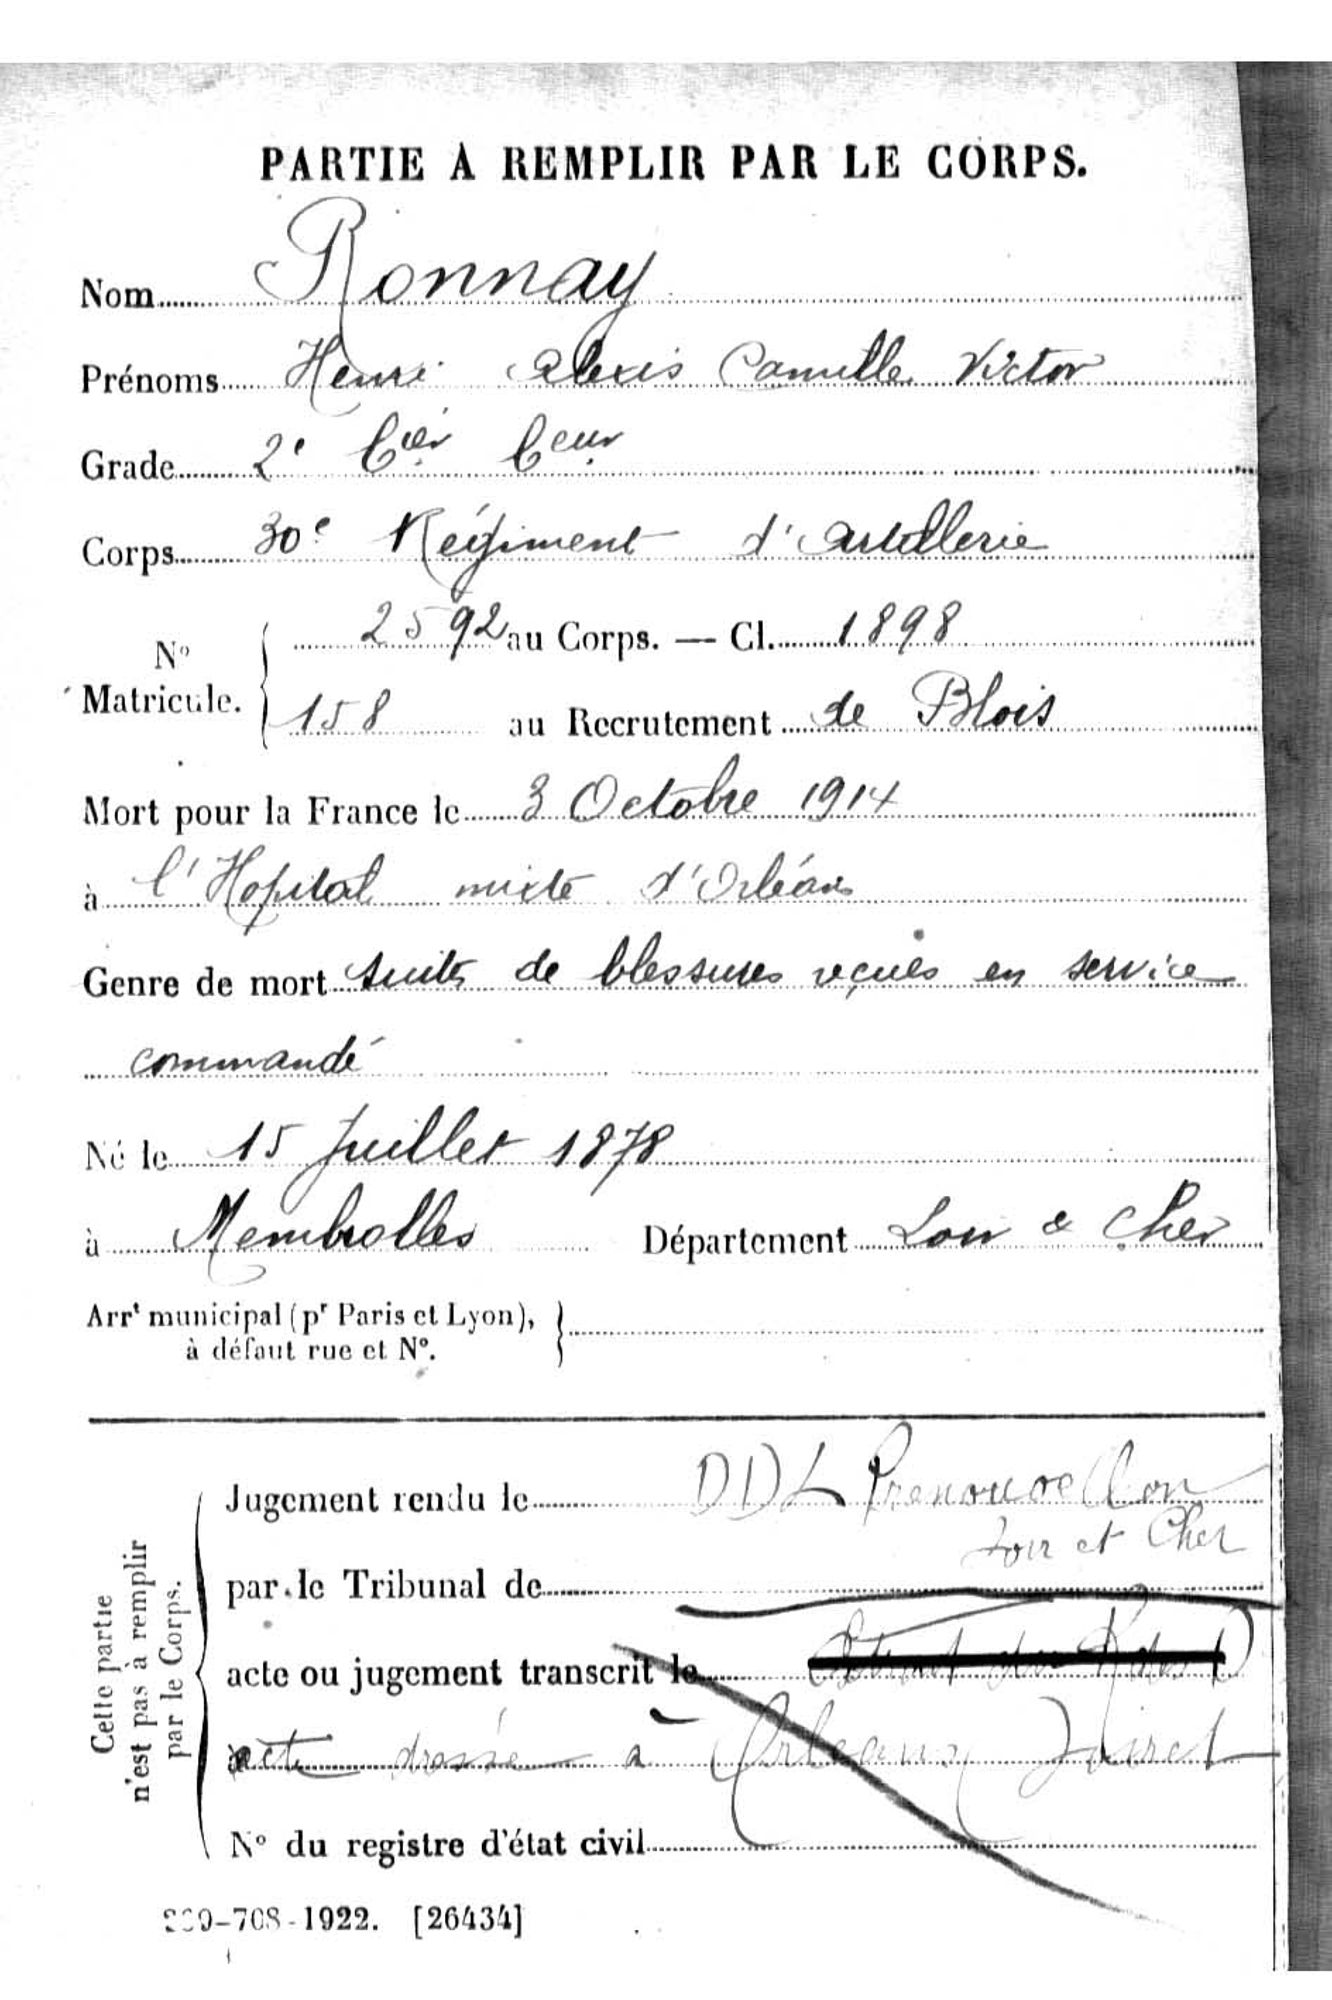 PARTIE À REMPLIR PAR LE CORPS.
Nom Ronnay
Prénoms Henri Alexis Camille Victor
Grade 2e Cer Ceur
Corps 30e Régiment d'Artillerie
No Matricule. 2592 au Corps. — Cl. 1898
158 au Recrutement de Blois
Mort pour la France le 3 Octobre 1914
à l'Hopital mixte d'Orléans
Genre de mort suites de blessures reçues en service
commandé
Né le 15 Juillet 1878
à Membrolles Département Loir & Cher
Arrt municipal (pr Paris et Lyon),
à défaut rue et No.
Cette partie
n'est pas à remplir
par le Corps.
Jugement rendu le DDL Prenouvellon
Loir et Cher
par le Tribunal de
acte ou jugement transcrit le
acte dressé à Orléans Loiret
No du registre d'état civil
-708-1922. [26434]